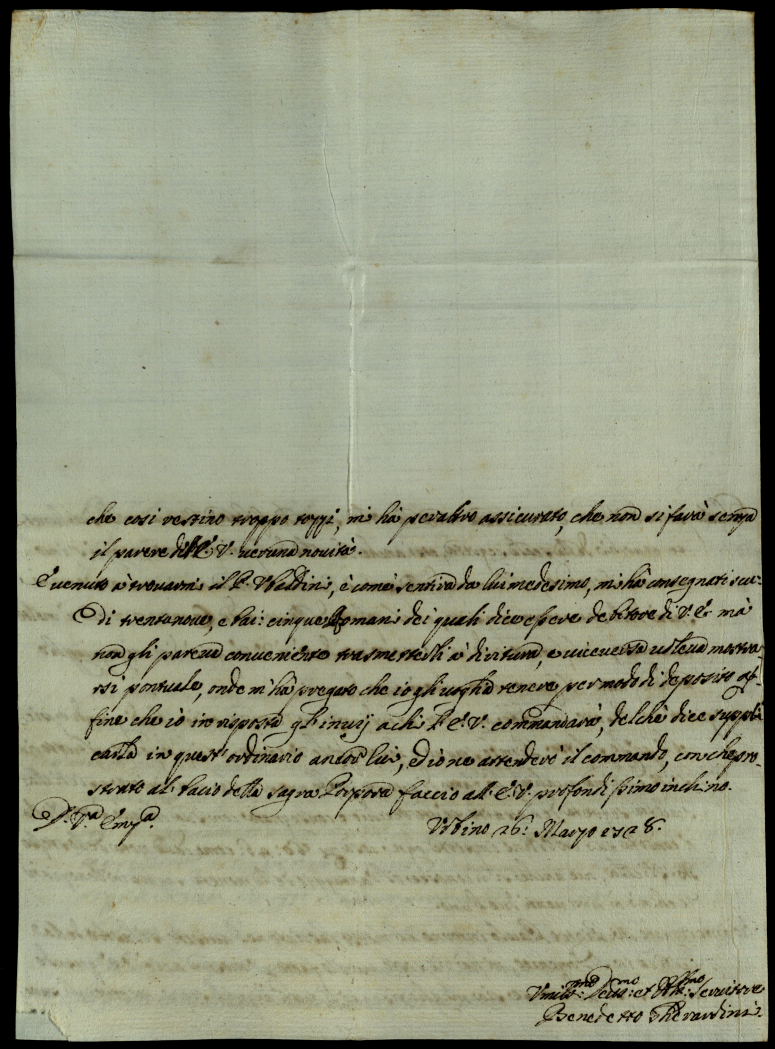 che così restino troppo rozzi, mi hà per altro assicurato, che non si farà senza
il parere dell'E. V. veruna novità.
È venuto à trovarmi il P. Valdini, e come sentirà da lui medesimo, mi hà consegnati scu-
di trentanove, e bai: cinque Romani dei quali dice essere debitore di V. E. mà
non gli pareva conveniente trasmetterli à dirittura, e viceversa voleva mostrar-
si pontuale, onde mi hà pregato che io gli voglia tenere per modo di deposito af-
fine che io in risposta gl'invij a chi l'E. V. commandarà, del chè dice suppli
carla in quest'ordinario ancor lui, ed io ne attenderò il commando, con che pro-
strato al bacio della sagra Porpora faccio all'E. V. profondissimo inchino.
D. V.ra Em.za Urbino 26: Marzo 1728.
Umil.mo Dev.mo et Obl.mo Servitore
Benedetto